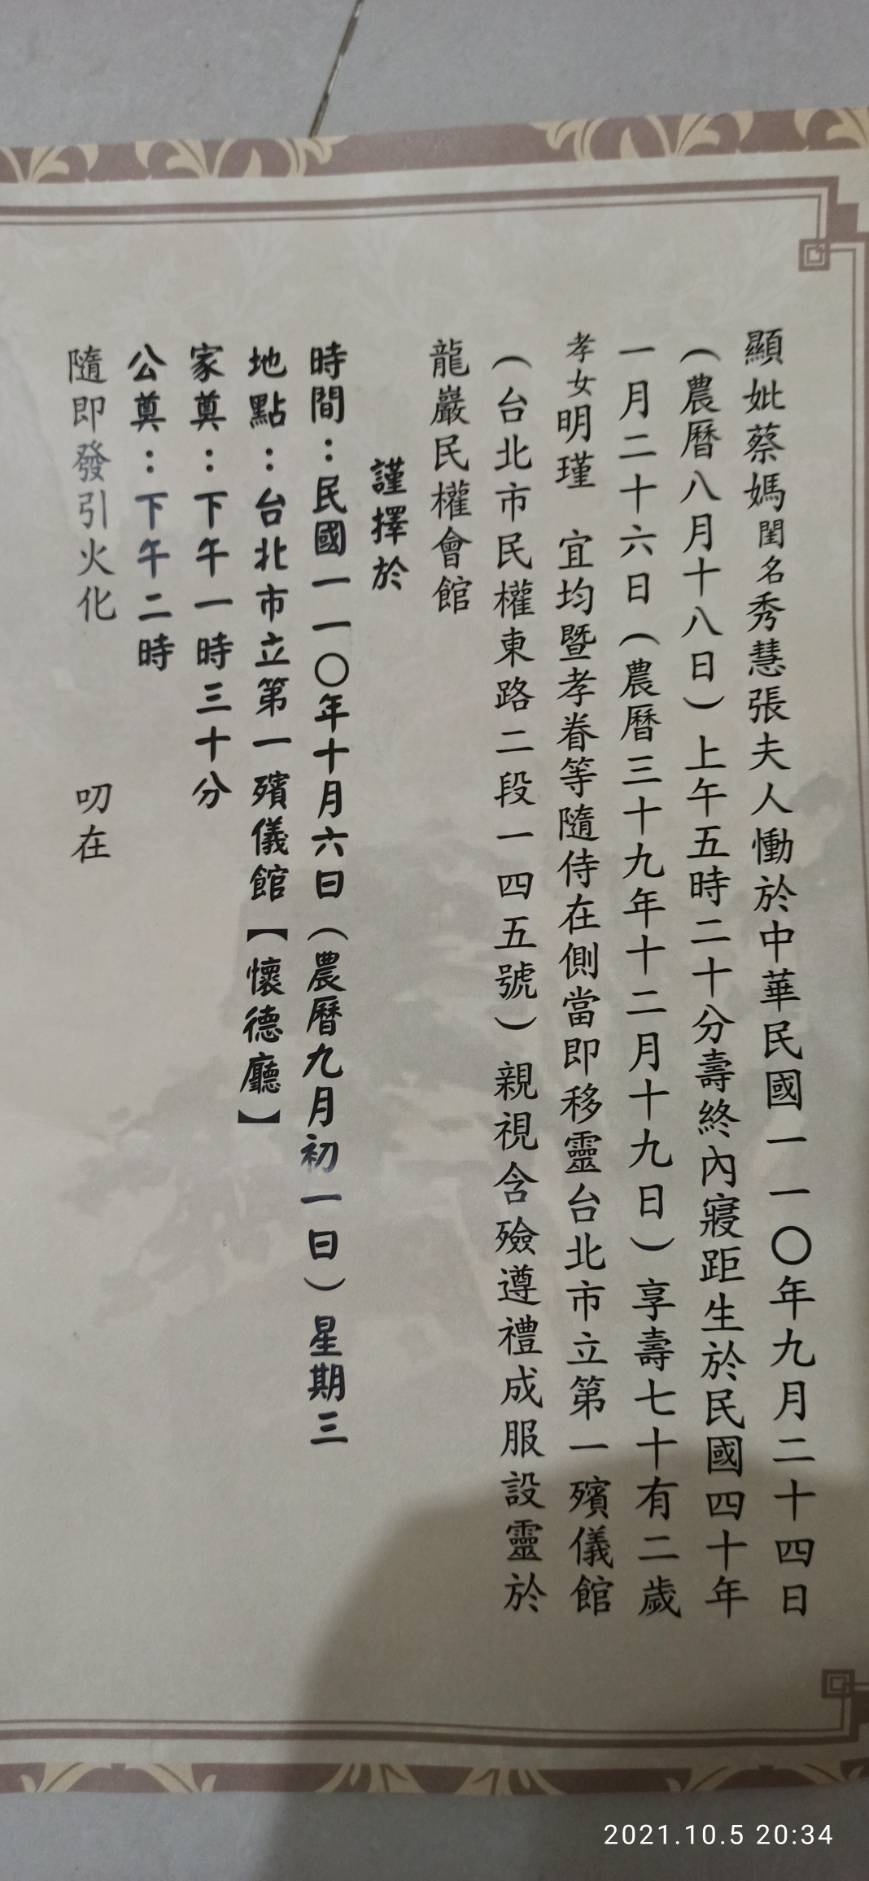 顯妣蔡媽閨名秀慧張夫人慟於中華民國一一〇年九月二十四日
（農曆八月十八日）上午五時二十分壽終內寢距生於民國四十年
一月二十六日（農曆三十九年十二月十九日）享壽七十有二歲
孝女明瑾　宜均暨孝眷等隨侍在側當即移靈台北市立第一殯儀館
（台北市民權東路二段一四五號）親視含殮遵禮成服設靈於
龍巖民權會館
謹擇於
時間：民國一一〇年十月六日（農曆九月初一日）星期三
地點：台北市立第一殯儀館【懷德廳】
家奠：下午一時三十分
公奠：下午二時
隨即發引火化　叨在
2021.10.5 20:34